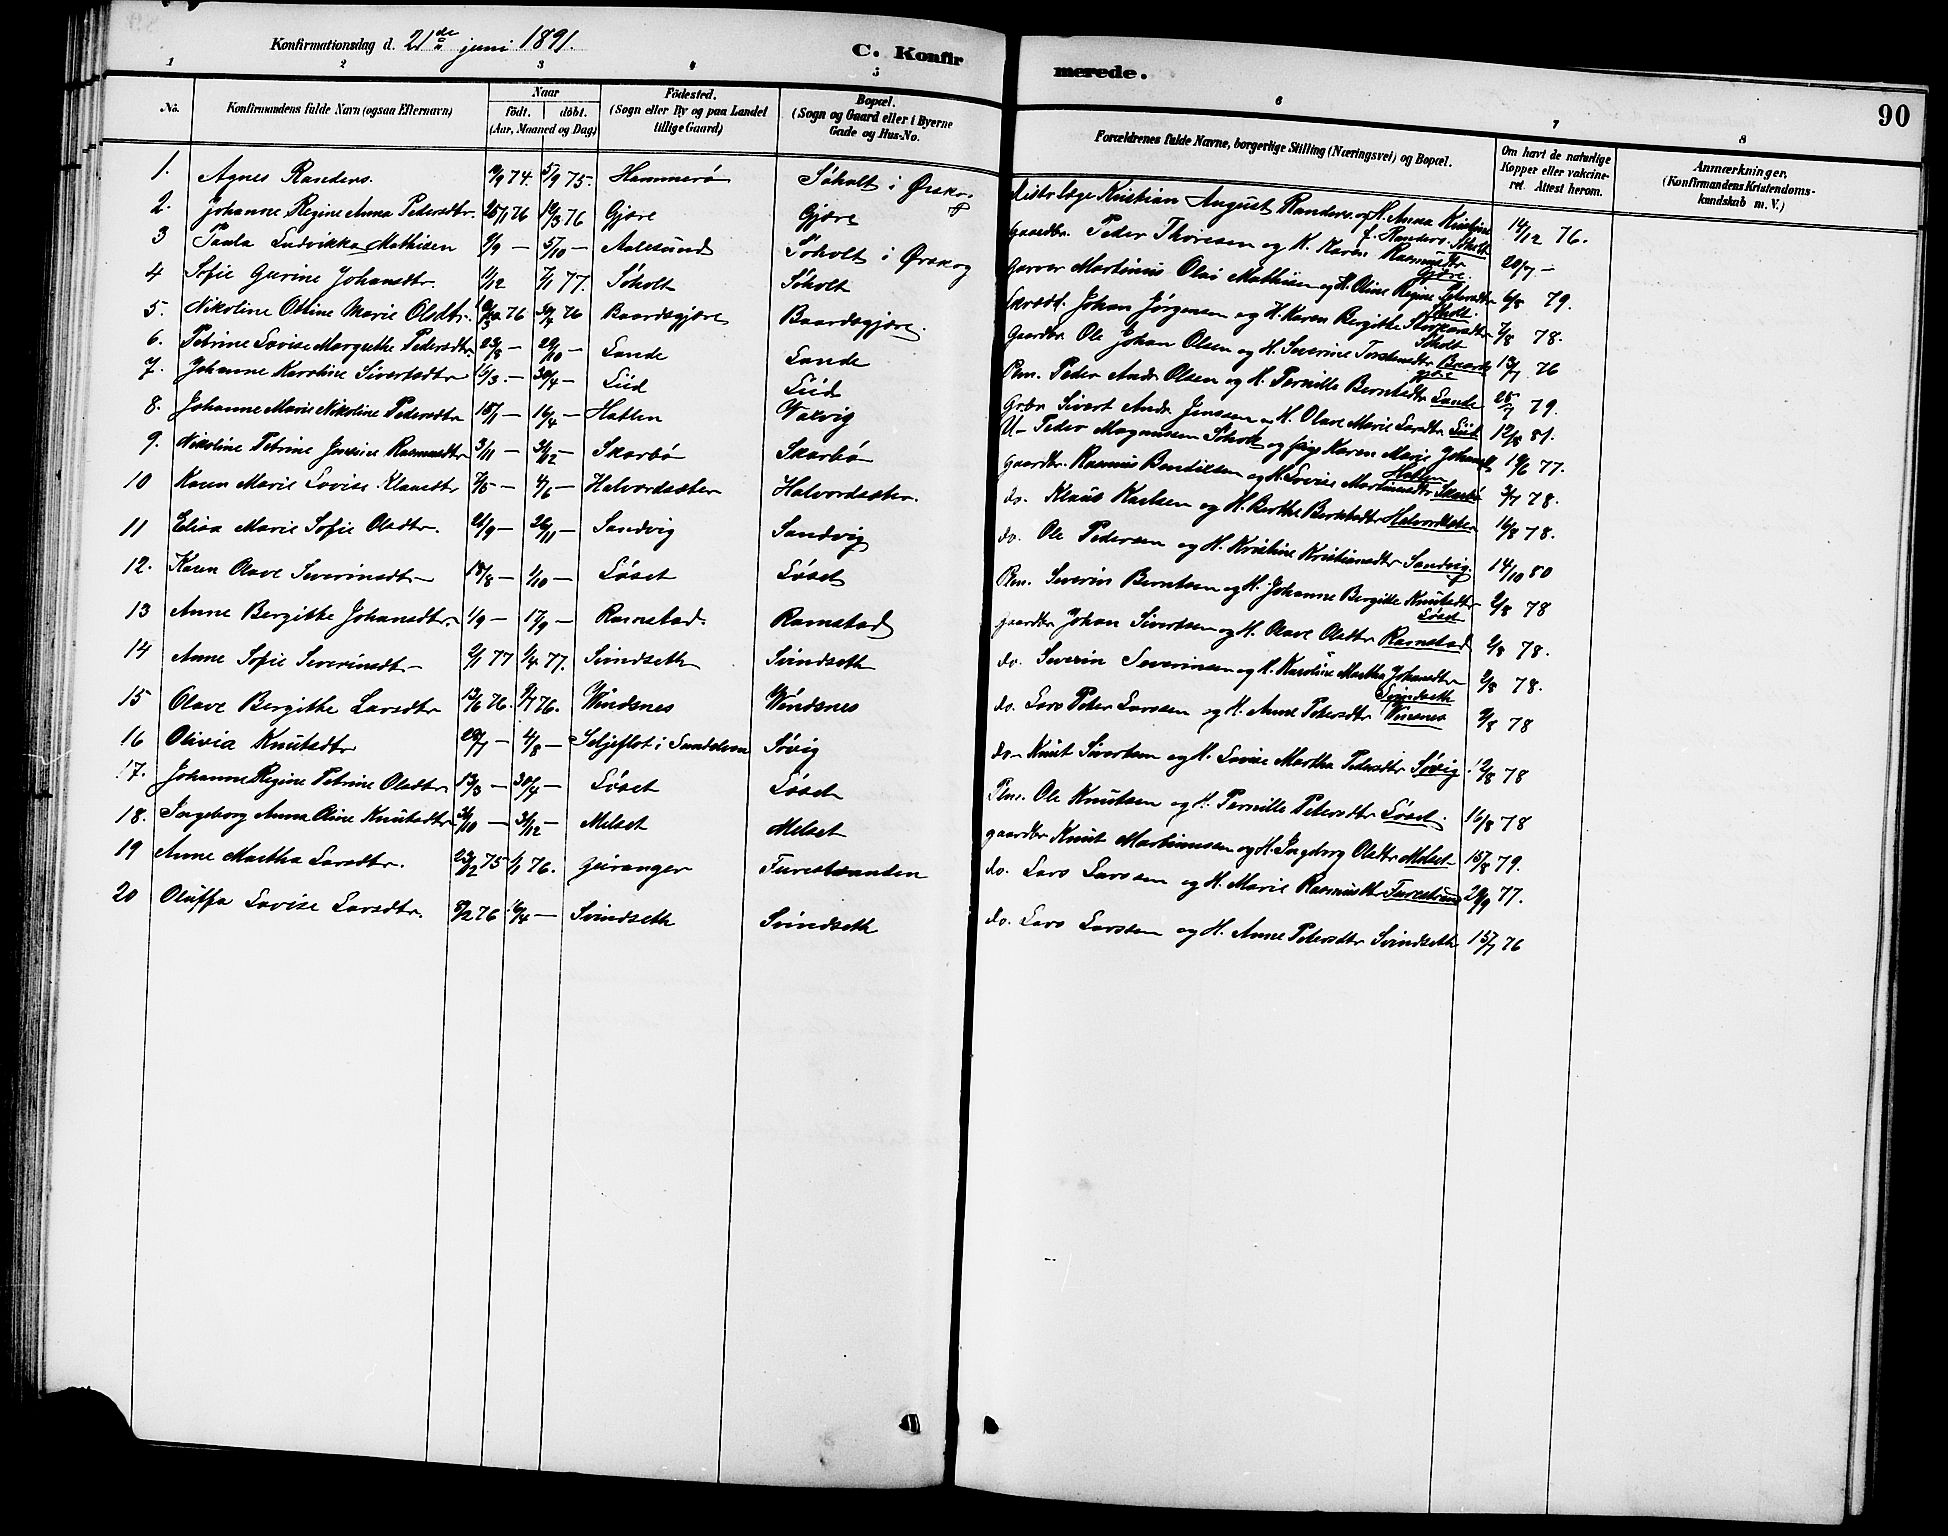 Konfirmationsdag d. 21de juni 1891.
C. Konfirmerede.
90
1 2 3 4 5 6 7 8
No. Konfirmandens fulde Navn (ogsaa Efternavn) Naar født. døbt. (Aar, Maaned og Dag) Fødested. (Sogn eller By og paa Landet tillige Gaard) Bopæl. (Sogn og Gaard eller i Byerne Gade og Hus-No. Forældrenes fulde Navne, borgerlige Stilling (Næringsvei) og Bopæl. Om havt de naturlige Kopper eller vakcineret. Attest herom. Anmærkninger. (Konfirmandens Kristendomskundskab m. V.)
1. Agnes Randers. 74. 5/9 75. Hammerø Søholt i Ørskog Kristian August Randers og H. Anna Kristine f. Randers. Søholt 14/12 76.
2. Johanne Regine Anna Pedersdtr. 25/1 76 19/3 76 Gjøre Gjøre Gaardbr. Peder Thoresen og H. Karen Rasmusdtr Gjøre. 20/7 —
3 Paula Ludvikka Mathisen 9/9 — 5/10 — Aalesund Søholt i Ørskog Garver Martinius Olai Mathisen og H. Oline Regine Petersdtr Søholt. 6/8 79.
4 Sofie Gurine Johansdtr. 1/12 7/1 77. Søholt Søholt Johan Jørgensen og H. Karen Bergithe Søholt 7/8 78.
5. Nikoline Ottine Marie Olsdtr. 76 30/4 76 Baardsgjøre Baardsgjøre. Gaardbr. Ole Johan Olsen og H. Severine Torstensdtr Baardsgjøre 13/7 76
6. Petrine Lovise Margrethe Pedersdtr 23/8 — 29/10 — Lande Lande Plm. Peder Andr. Olsen og H. Pernille Berntsdtr Lande 25/7 79.
7. Johanne Karoline Sivertsdtr 15/3. — 30/4 — Liid Liid Grbr Sivert Andr. Jenssen og H. Olave Marie Larsdtr Liid 12/8 81.
8. Johanne Marie Nikoline Pedersdtr 18/1 — 16/4 — Hatlen Valvig U— Peder Magnussen Søholt og pige Karen Marie Johansdtr Hatlen 19/6 77.
9. Nikoline Petrine Jensine Rasmusdtr 3/11 — 31/12 — Skarbø Skarbø gaardbr. Rasmus Bendiksen og H. Lovise Martinusdtr Skarbø 3/7 78.
10 Karen Marie Lovise Klausdtr 7/5 — 4/6 — Halvordsæter Halvordsæter. do. Klaus Karlsen og H. Berthe Berntsdtr Halvordsæter 16/8 78.
11 Elisa Marie Sofie Olsdtr. 21/9 — 26/11 — Sandvig Sandvig do. Ole Pedersen og H. Kristine Kristiansdtr Sandvig. 14/10 80
12. Karen Olave Severinsdtr — 18/8 — 1/10 — Løset Løset Plm. Severin Berntsen og H. Johanne Bergithe Knutsdtr Løset 2/8 78
13 Anne Bergithe Johansdtr. 1/9 — 17/9 — Ramstad. Ramstad gaardbr Johan Sivertsen og H. Olave Olsdtr Ramstad 2/8 78.
14 Anne Sofie Severinsdtr — 2/1 77 1/4 77. Svindseth Svindseth do. Severin Severinsen og H. Karoline Martha Johansdtr Svindseth 2/8 78.
15 Olave Bergithe Larsdtr 13/6 76. 9/7 76. Windsnes Windsnes do. Lars Peter Larssen og H. Anne Petersdtr Vinsnes 9/8 78
16 Olivia Knutsdtr 29/7 — 4/8 — Seljeflot i Sundalen Søvig do — Knut Sivertsen og H. Lovise Martha Pedersdtr Søvig 12/8 78
17. Johanne Regine Petrine Olsdtr 13/3 — 30/4 — Løset Løset Plm. Ole Knutsen og H. Pernille Petersdtr Løset. 16/8 78
18. Ingeborg Anna Oline Knutsdtr 31/10 — 31/12 — Melset Melset gaardbr Knut Martinussen og H. Ingeborg Olsdtr Melset 15/8 79.
19 Anne Martha Larsdtr. 23/12 75 1/1 76. Geiranger Furestranden do. Lars Larssen og H. Marie Rasmusdtr Furestrand 29/9 77.
20 Oluffa Lovise Larsdtr. 8/2 76 16/4 — Svindseth Svindseth do. Lars Larssen og H. Anne Petersdtr Svindseth 15/7 76